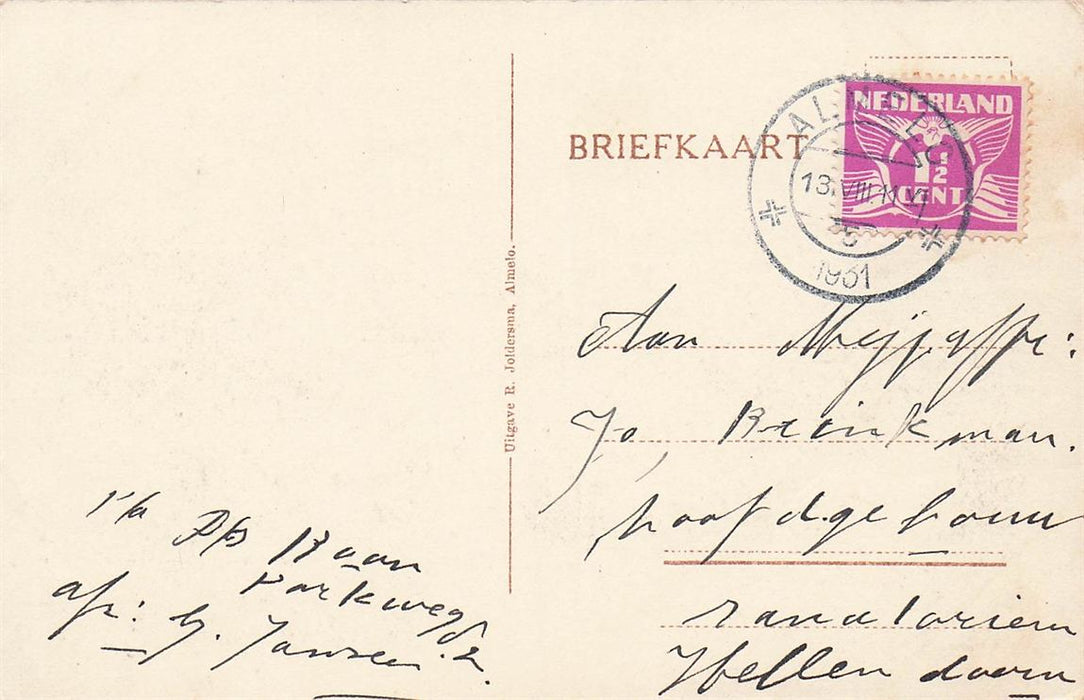 BRIEFKAART
NEDERLAND
1½
CENT
ALMELO
13.VIII.11
1931
Uitgave R. Joldersma, Almelo.
Aan Mejj
Jo, Brinkman.
hoofdgebouw
sanatorium
Hellendoorn
p/a
Parkweg
afz: G. Jansen